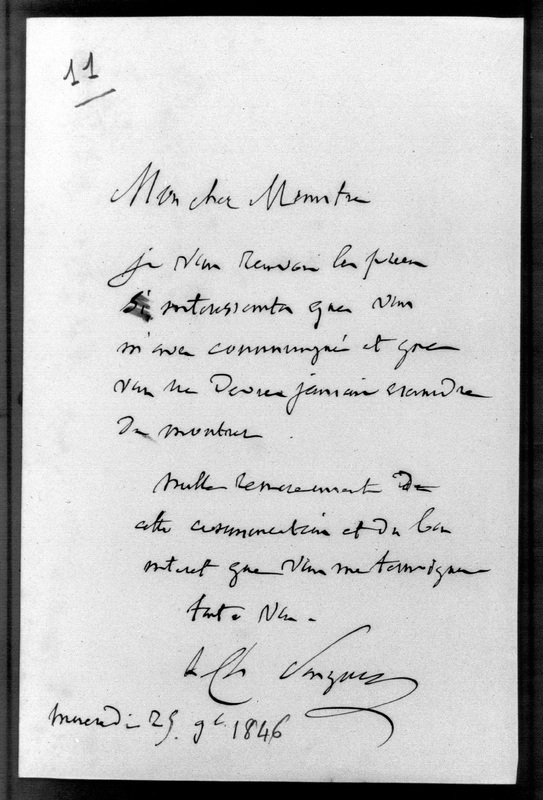 11
Mon cher Ministre
je vous renvoie les pieces
si interessantes que vous
m'avez communiqué et que
vous ne devez jamais craindre
de montrer.
mille remerciements de
cette communication et du bon
interet que vous me temoignez
tout à vous.
Mercredi 25 9bre 1846